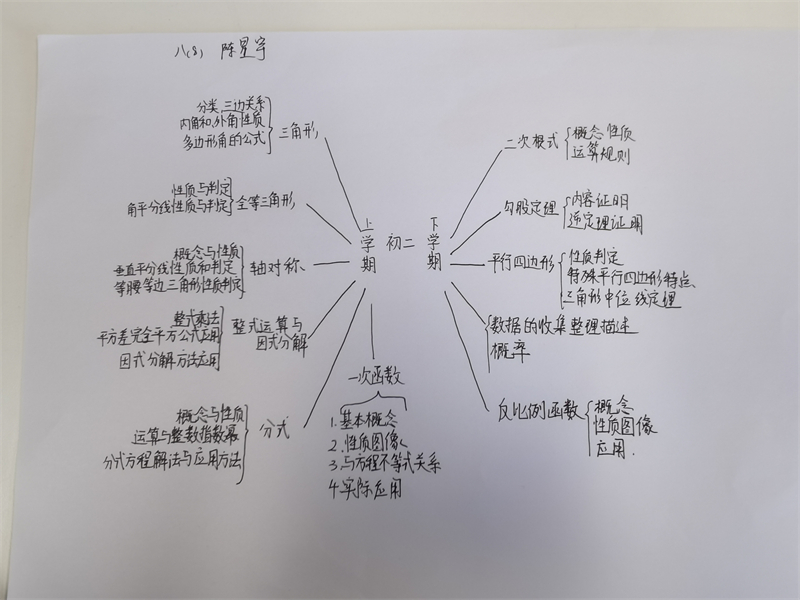 八(8) 陈星宇
分类、三边关系
内角和、外角性质
多边形角的公式
三角形
性质与判定
角平分线性质与判定
全等三角形
概念与性质
垂直平分线性质和判定
等腰等边三角形性质判定
轴对称
整式乘法
平方差完全平方公式应用
因式分解方法应用
整式运算与
因式分解
概念与性质
运算与整数指数幂
分式方程解法与应用方法
分式
上学期
初二
下学期
一次函数
1.基本概念
2.性质图像
3.与方程不等式关系
4.实际应用
二次根式
概念性质
运算规则
勾股定理
内容证明
逆定理证明
平行四边形
性质判定
特殊平行四边形特点
三角形中位线定理
数据的收集整理描述
概率
反比例函数
概念
性质图像
应用.